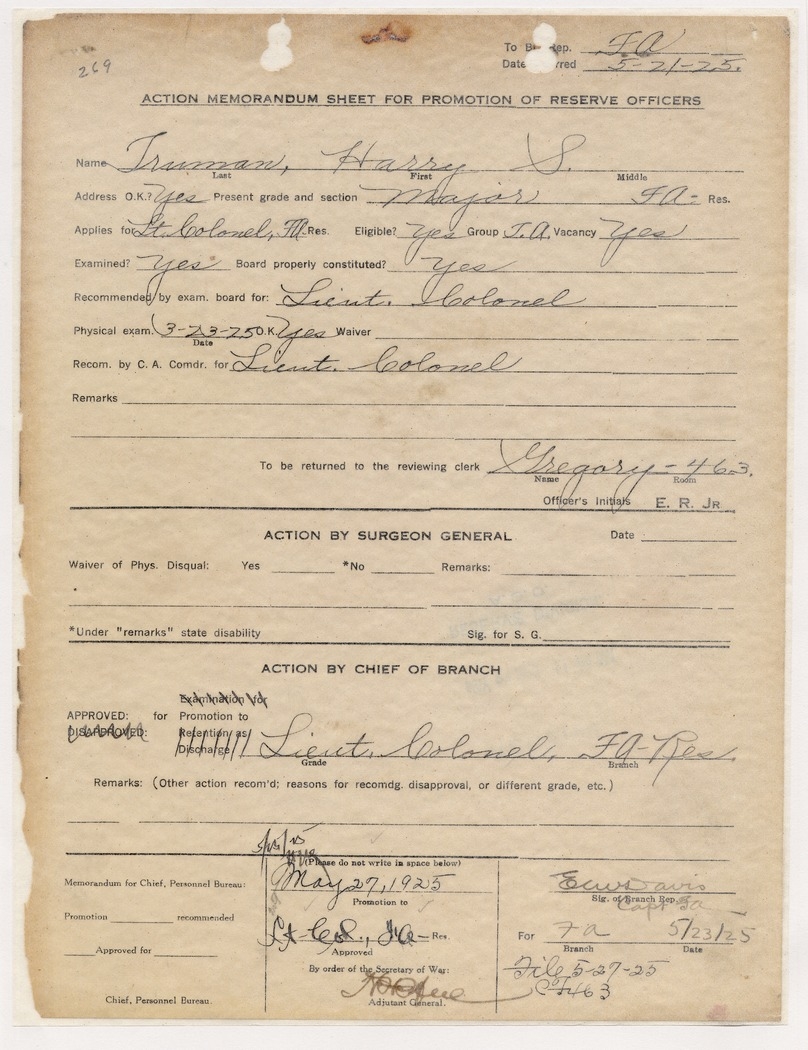 269
To Br. Rep. FA
Date referred 5-21-25.
ACTION MEMORANDUM SHEET FOR PROMOTION OF RESERVE OFFICERS
Name Truman, Harry S.
Last First Middle
Address O.K.? Yes Present grade and section Major FA- Res.
Applies for Lt. Colonel, FA-Res. Eligible? Yes Group T.A. Vacancy Yes
Examined? Yes Board properly constituted? Yes
Recommended by exam. board for: Lieut. Colonel
Physical exam. (3-23-25 O.K. Yes Waiver
Date
Recom. by C. A. Comdr. for Lieut. Colonel
Remarks
To be returned to the reviewing clerk Gregory - 463.
Name Room
Officer's Initials E. R. Jr
ACTION BY SURGEON GENERAL Date
Waiver of Phys. Disqual: Yes *No Remarks:
*Under "remarks" state disability Sig. for S. G.
ACTION BY CHIEF OF BRANCH
Examination for
APPROVED: for Promotion to
DISAPPROVED: Retention as
Discharge Lieut. Colonel, FA-Res.
Grade Branch
Remarks: (Other action recom'd; reasons for recomdg. disapproval, or different grade, etc.)
(Please do not write in space below)
Memorandum for Chief, Personnel Bureau: May 27, 1925
Promotion to
Davis
Sig. of Branch Rep.
Capt FA
Promotion recommended
Lt. Col., FA- Res.
For FA 5/23/25
Branch Date
Approved for
Approved
By order of the Secretary of War:
File 5-27-25
463
Chief, Personnel Bureau.
Adjutant General.